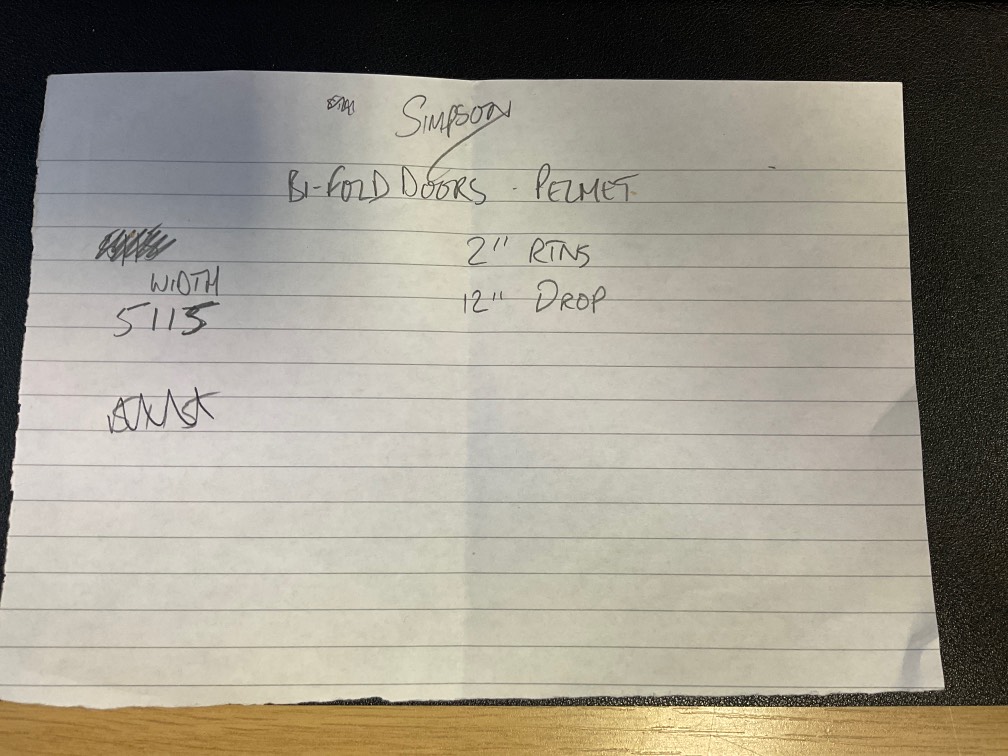 SIMPSON
BI-FOLD DOORS - PELMET
WIDTH
5115
2" RTNS
12" DROP